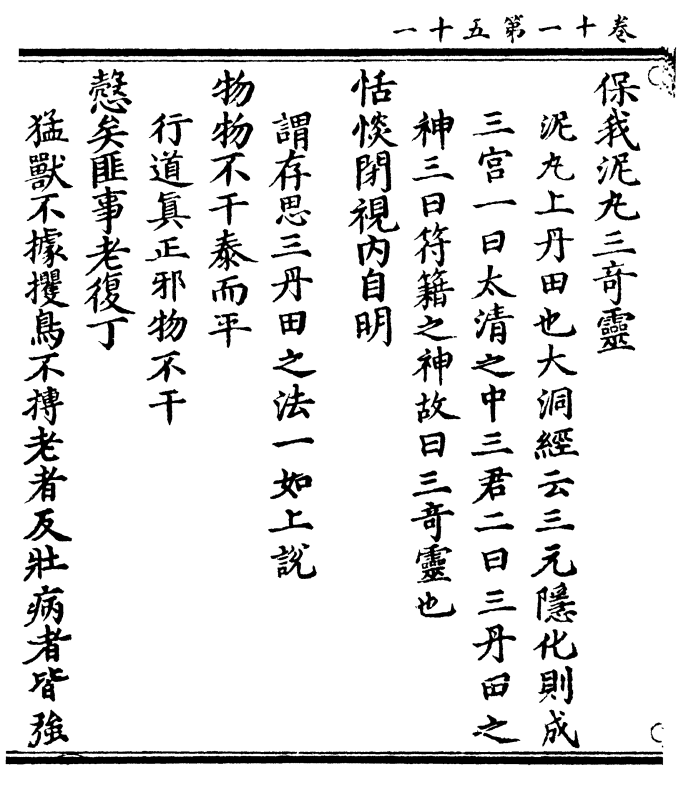 卷十一第五十一
保我泥丸三奇靈
泥丸上丹田也大洞經云三元隱化則成
三宮一曰太清之中三君二曰三丹田之
神三曰符籍之神故曰三奇靈也
恬惔閉視內自明
謂存思三丹田之法一如上說
物物不干泰而平
行道眞正邪物不干
慤矣匪事老復丁
猛獸不據攫鳥不搏老者反壯病者皆強